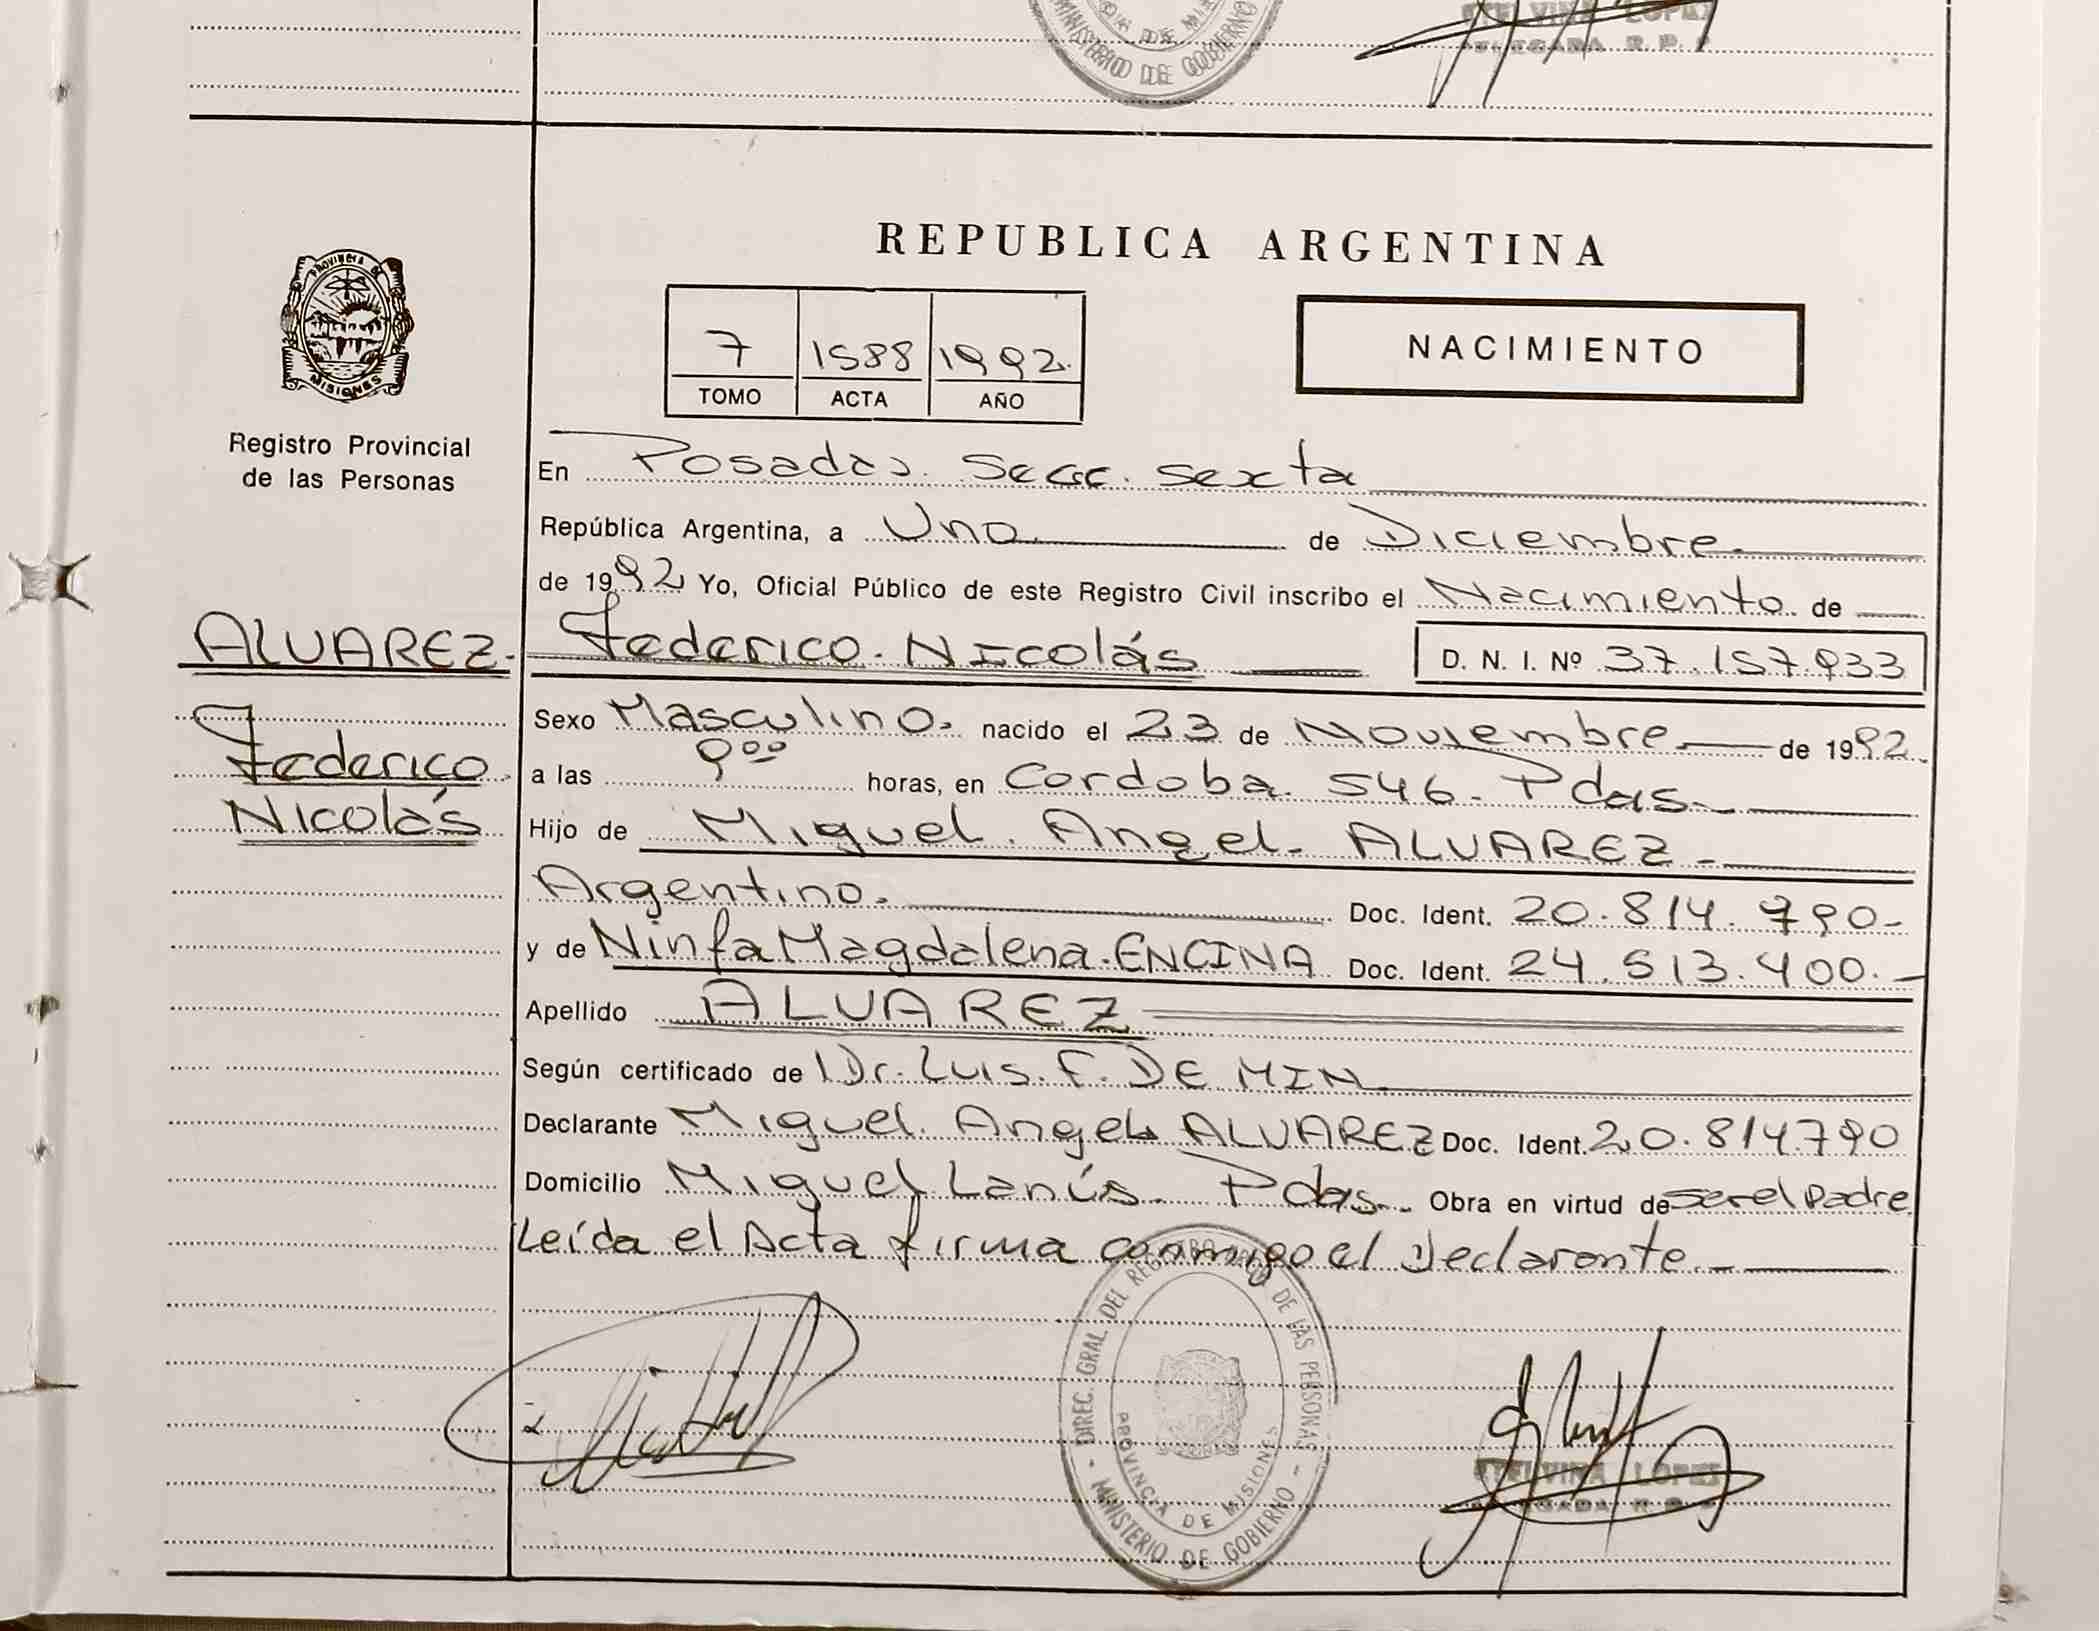 MINISTERIO DE GOBIERNO
LOPEZ
R. P.
REPUBLICA ARGENTINA
PROVINCIA DE
MISIONES
7 1588 1992.
TOMO ACTA AÑO
NACIMIENTO
Registro Provincial
de las Personas
En Posadas. Secc. Sexta
República Argentina, a Uno de Diciembre.
de 1992 Yo, Oficial Público de este Registro Civil inscribo el Nacimiento de
ALVAREZ. Federico. Nicolás D. N. I. Nº 37.157.933
Federico
Nicolás
Sexo Masculino. nacido el 23 de Noviembre de 1992.
a las 9 00 horas, en Cordoba. 546. Pdas.
Hijo de Miguel. Angel. ALVAREZ.
Argentino. Doc. Ident. 20.814.790-
y de Ninfa Magdalena. ENCINA Doc. Ident. 24.513.400.-
Apellido ALVAREZ
Según certificado de Dr. Luis. F. DE MIN.
Declarante Miguel. Angel ALVAREZ Doc. Ident. 20.814.790
Domicilio Miguel Lanús. Pdas. Obra en virtud de ser el padre
Leída el Acta firma conmigo el Declarante.
DIREC. GRAL DEL REGISTRO DE LAS PERSONAS - MINISTERIO DE GOBIERNO -
PROVINCIA DE MISIONES
LOPEZ